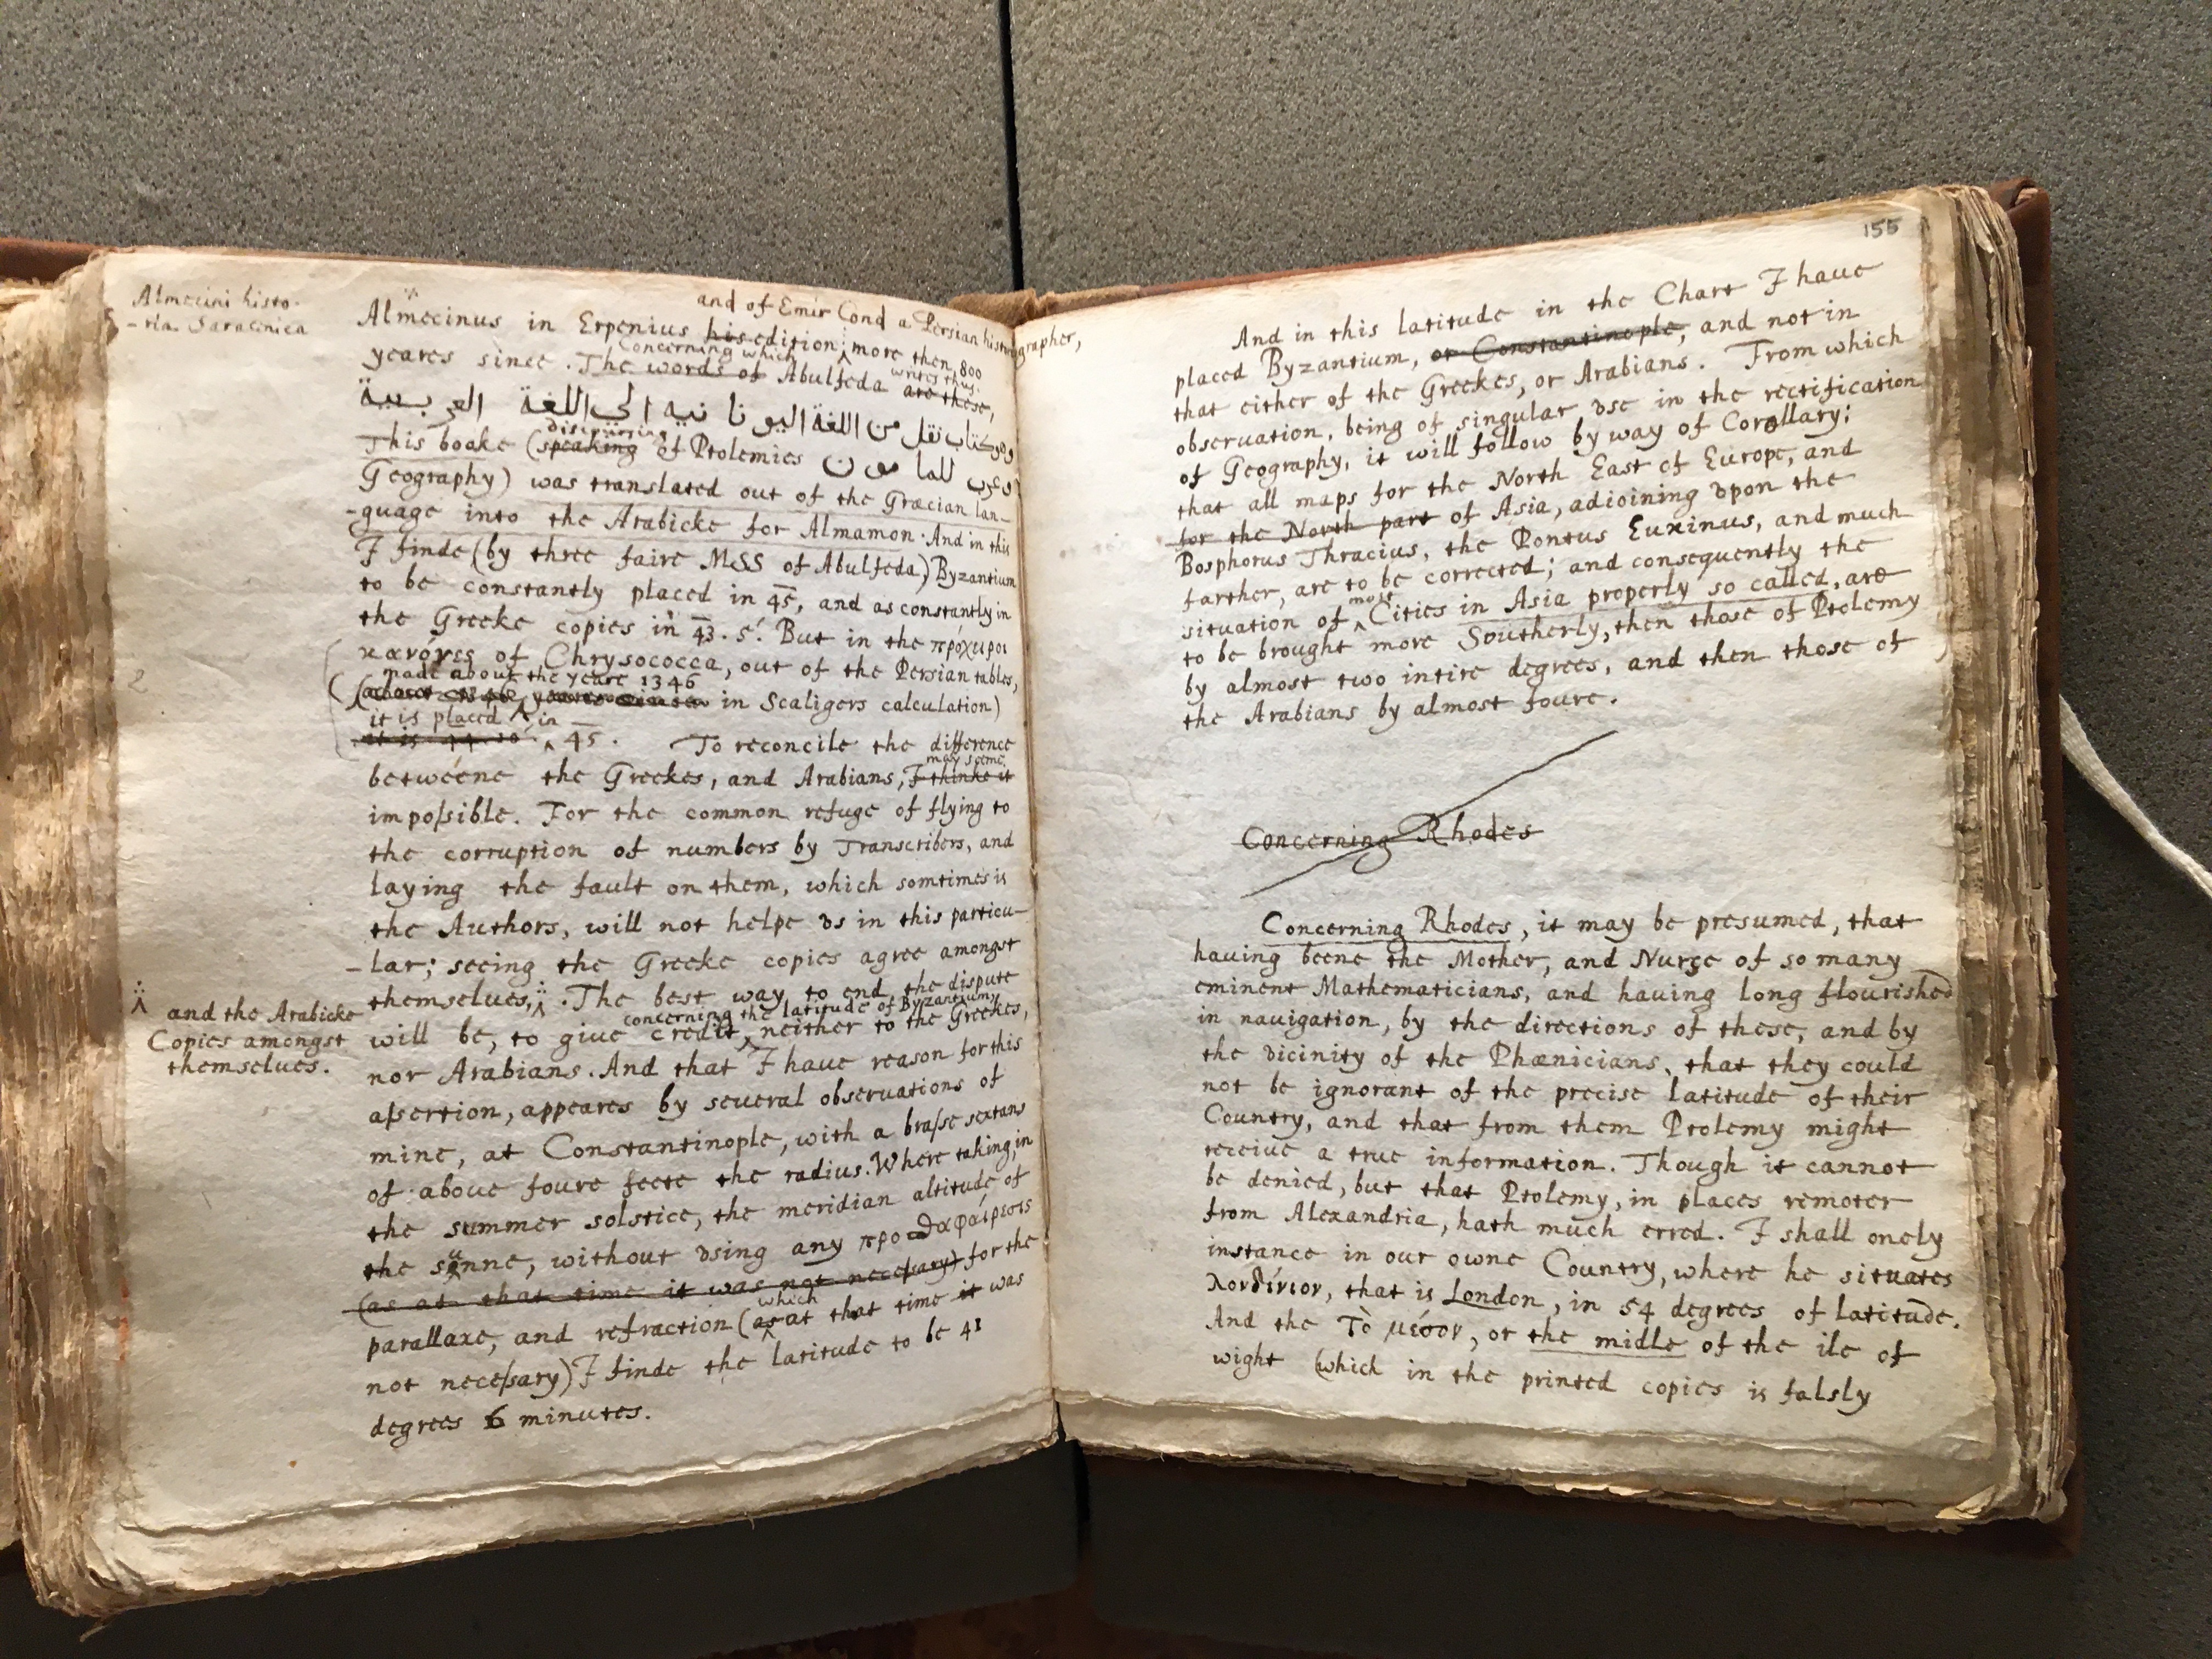 Almecini histo-
-ria Saracenica
and of Emir Cond a Persian historiographer,
Almecinus in Erpenius his edition more then 800
concerning which
yeares since. The words of Abulfeda are these,
writes thus.
وهو كتاب نقل من اللغة اليونانيه الي اللغة العربية
discoursing
This booke (speaking of Ptolemies وعرب للمامون
Geography) was translated out of the Græcian lan-
-guage into the Arabicke for Almamon. And in this
I finde (by three faire MSS of Abulfeda) Byzantium
to be constantly placed in 45, and as constantly in
the Greeke copies in 43. 5'. But in the πρόχειροι
κανόνες of Chrysococca, out of the Persian tables,
made about the yeare 1346
(about in Scaligers calculation)
it is placed in
it is 44 45. To reconcile the difference
may seeme
betweene the Greekes, and Arabians, I thinke it
impossible. For the common refuge of flying to
the corruption of numbers by Transcribers, and
laying the fault on them, which somtimes is
the Authors, will not helpe vs in this particu-
-lar; seeing the Greeke copies agree amongst
themselues, . The best way to end the dispute
and the Arabicke
Copies amongst
themselues.
concerning the latitude of Byzantium,
will be, to giue credit neither to the Greekes,
nor Arabians. And that I haue reason for this
assertion, appeares by seueral obseruations of
mine, at Constantinople, with a brasse sextans
of aboue foure feete the radius. Where taking, in
the summer solstice, the meridian altitude of
the sunne, without vsing any προσθαφαίρεσις
(as at that time it was not necessary) for the
which
parallaxe, and refraction (as at that time it was
not necessary) I finde the latitude to be 41
degrees 6 minutes.
155
And in this latitude in the Chart I haue
placed Byzantium, or Constantinople, and not in
that either of the Greekes, or Arabians. From which
obseruation, being of singular vse in the rectification
of Geography, it will follow by way of Corollary;
that all maps for the North East of Europe, and
for the North part of Asia, adioining vpon the
Bosphorus Thracius, the Pontus Euxinus, and much
farther, are to be corrected; and consequently the
most
situation of Cities in Asia properly so called, are
to be brought more Southerly, then those of Ptolemy
by almost two intire degrees, and then those of
the Arabians by almost foure.
Concerning Rhodes
Concerning Rhodes, it may be presumed, that
hauing beene the Mother, and Nurse of so many
eminent Mathematicians, and hauing long flourished
in nauigation, by the directions of these, and by
the vicinity of the Phænicians, that they could
not be ignorant of the precise latitude of their
Country, and that from them Ptolemy might
receiue a true information. Though it cannot
be denied, but that Ptolemy, in places remoter
from Alexandria, hath much erred. I shall onely
instance in our owne Country, where he situates
λονδίνιον, that is London, in 54 degrees of latitude.
And the Τὸ μέσον, or the midle of the ile of
wight (which in the printed copies is falsly